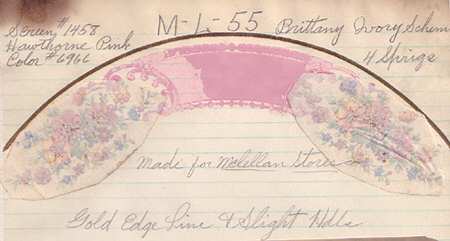 Screen # 1458
Hawthorne Pink
Color # 6966
M-L-55
Brittany Ivory Schem
4 Sprigs
Made for McLellan Stores
Gold Edge Line & Slight Hdls